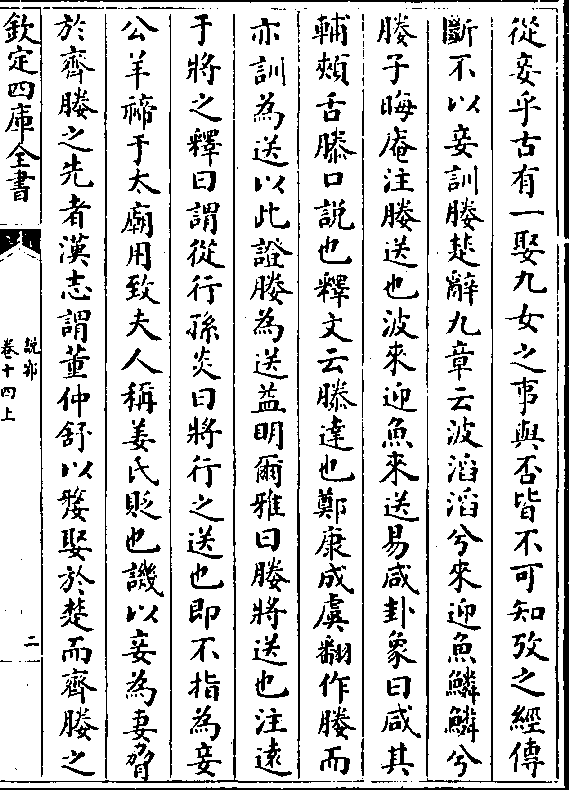 從妾乎古有一娶九女之事與否皆不可知攷之經傳
斷不以妾訓媵楚辭九章云波滔滔兮來迎魚鱗鱗兮
媵子晦庵注媵送也波來迎魚來送易咸卦象曰咸其
輔頰舌滕口說也釋文云滕達也鄭康成虞翻作媵而
亦訓為送以此證媵為送益明爾雅曰媵將送也注遠
于將之釋曰謂從行孫炎曰將行之送也即不指為妾
公羊禘于太廟用致夫人稱姜氏貶也譏以妾為妻脅
於齊媵之先者漢志謂董仲舒以釐娶於楚而齊媵之
欽定四庫全書
說郛
卷十四上
二